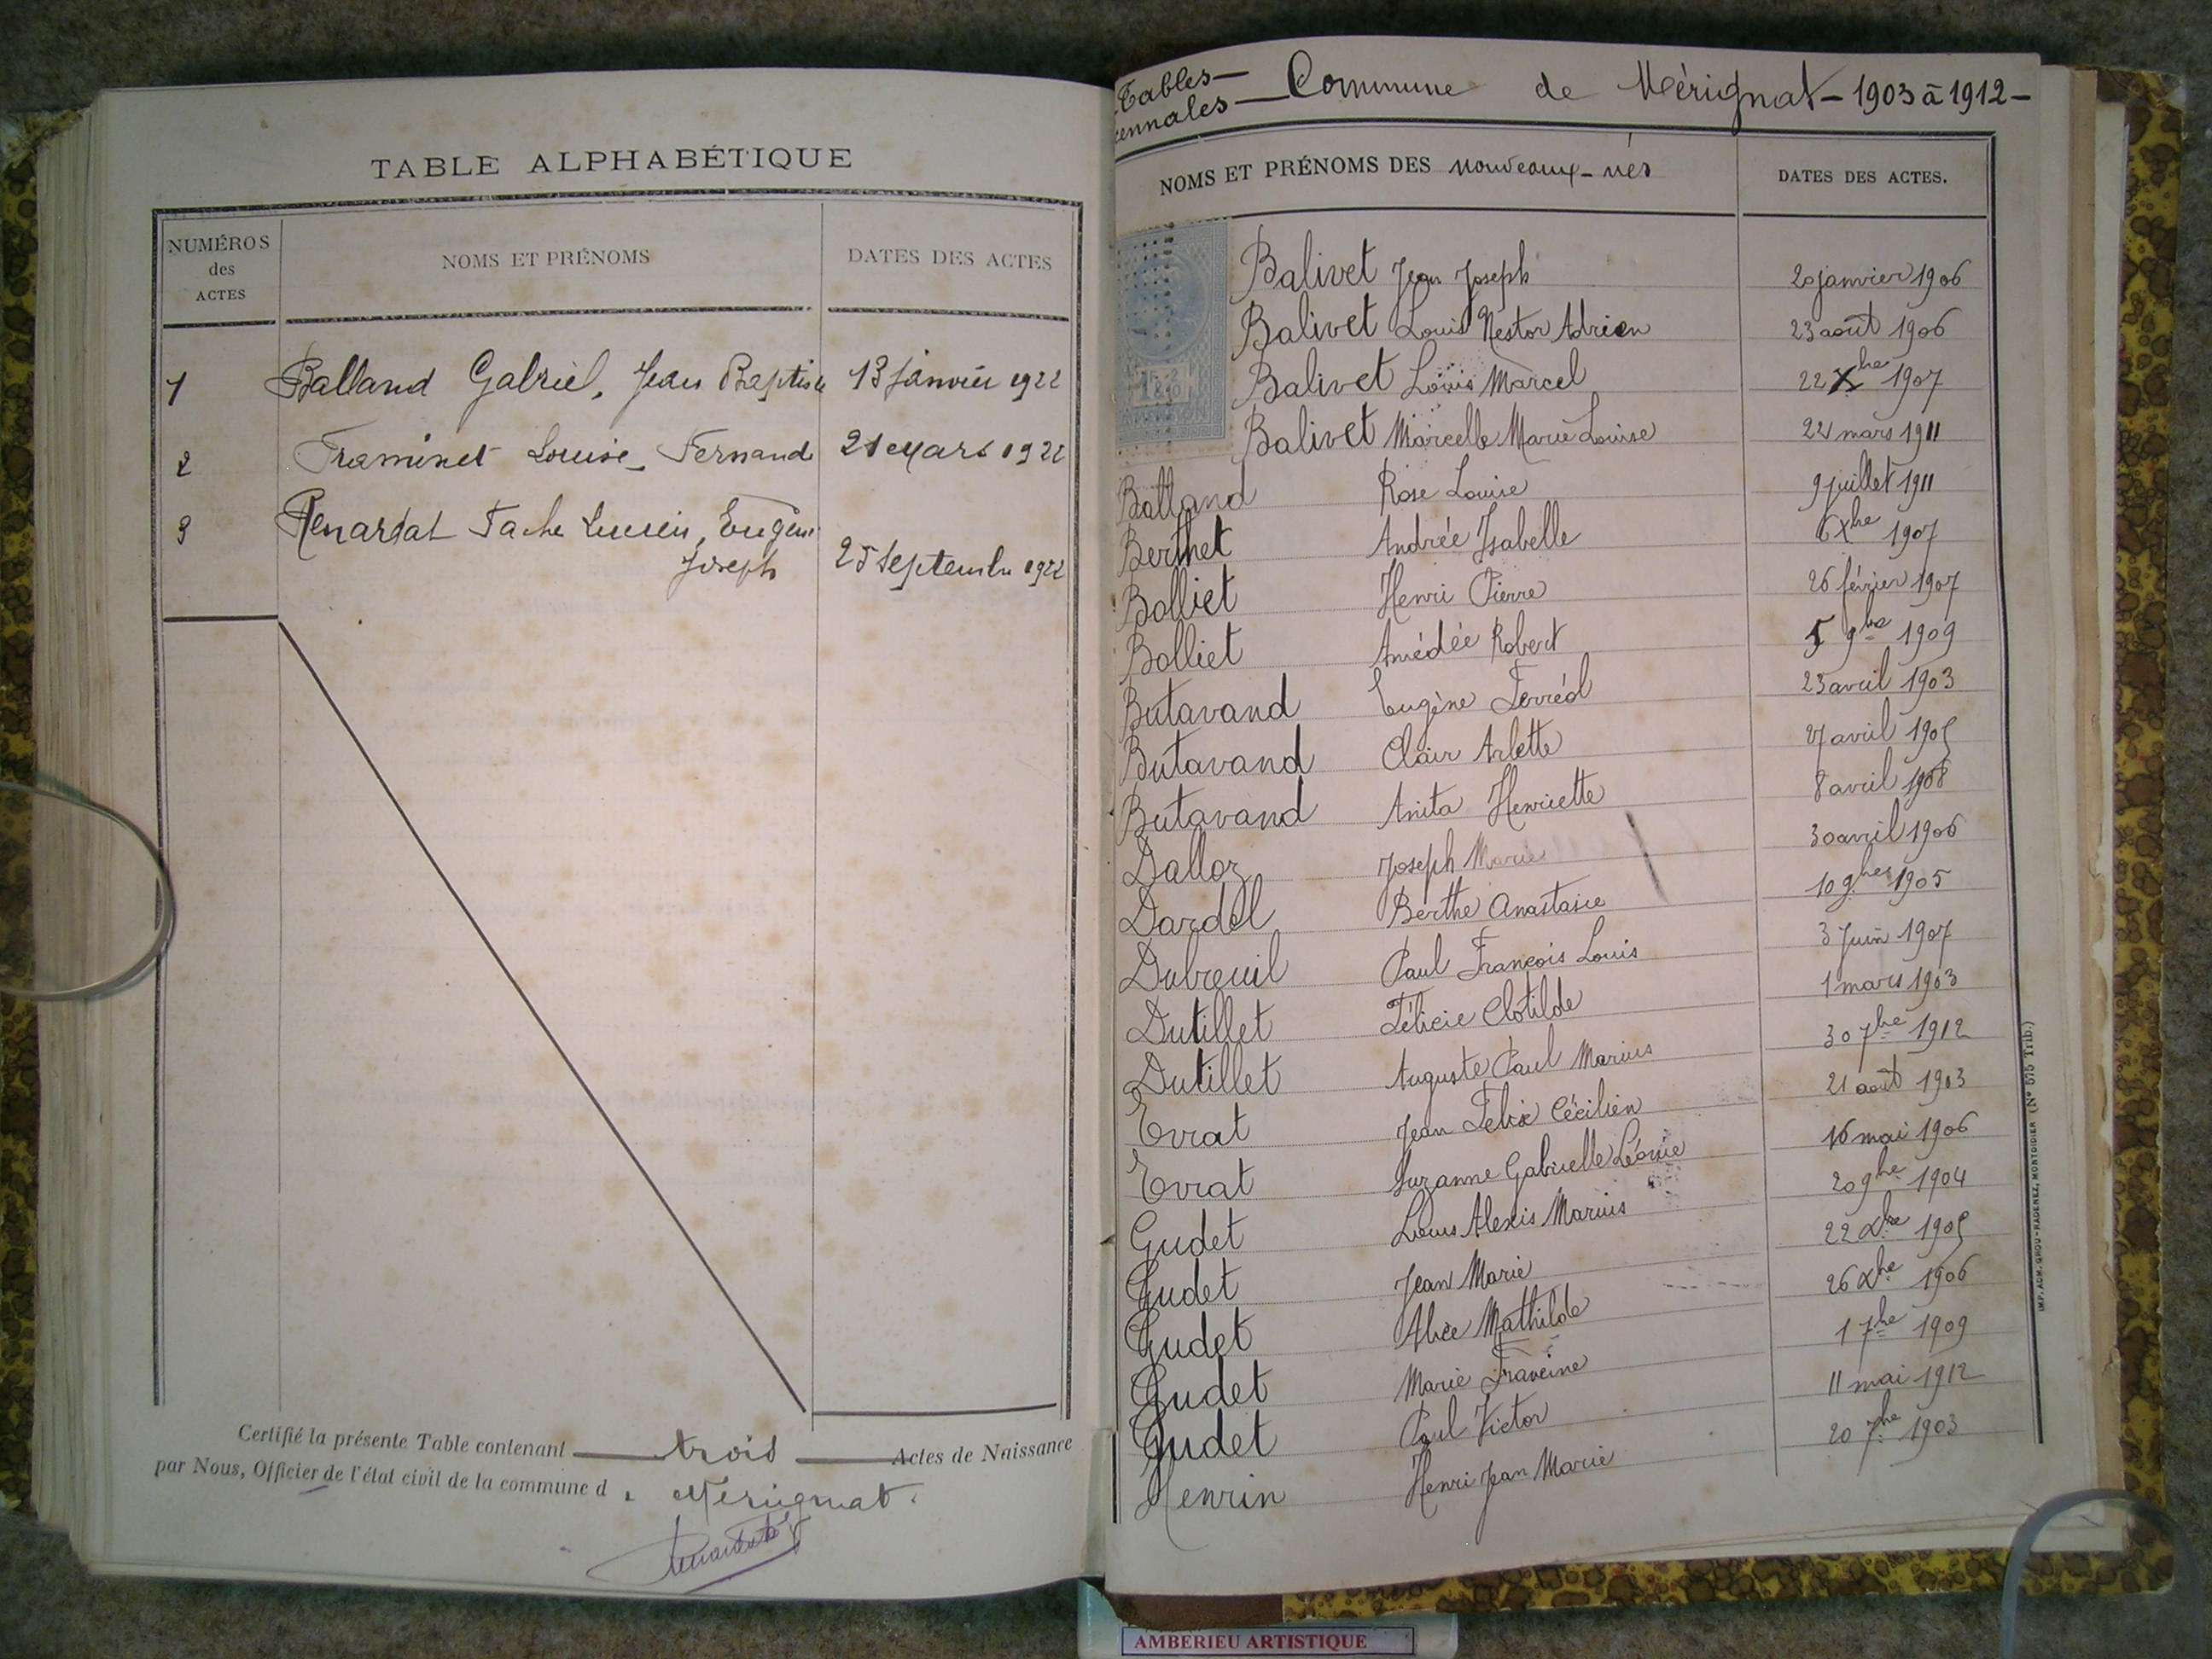 TABLE ALPHABÉTIQUE
NUMÉROS des ACTES
NOMS ET PRÉNOMS
DATES DES ACTES
1 Balland Gabriel, Jean Baptiste 13 janvier 1922
2 Traminet Louise Fernande 21 Mars 1922
3 Renardat Fache Lucien, Eugène
Joseph 25 Septembre 1922
Certifié la présente Table contenant trois Actes de Naissance
par Nous, Officier de l'état civil de la commune d Mérignat.
Tables
ennales
Commune de Mérignat - 1903 à 1912 -
NOMS ET PRÉNOMS DES nouveaux-nés
DATES DES ACTES.
Balivet Jean Joseph 20 janvier 1906
Balivet Louis Nestor Adrien 23 août 1906
Balivet Louis Marcel 22 Xbre 1907
Balivet Marcelle Marie Louise 22 mars 1911
Balland Rose Louise 9 juillet 1911
Berthet Andrée Isabelle 6 Xbre 1907
Bolliet Henri Pierre 26 février 1907
Bolliet Amédée Robert 5 9bre 1909
Butavand Eugène Ferréol 23 avril 1903
Butavand Clair Arlette 27 avril 1905
Butavand Anita Henriette 8 avril 1908
Dalloz Joseph Marie 30 avril 1906
Dardel Berthe Anastasie 10 9bre 1905
Dubreuil Paul François Louis 3 Juin 1907
Dutillet Félicie Clotilde 1 mars 1903
Dutillet Auguste Paul Marius 30 7bre 1912
Evrat Jean Félix Cécilien 21 août 1903
Evrat Suzanne Gabrielle Léonie 16 mai 1906
Gudet Louis Alexis Marius 20 9bre 1904
Gudet Jean Marie 22 Xbre 1905
Gudet Alice Mathilde 26 Xbre 1906
Gudet Marie Francine 1 7bre 1909
Gudet Paul Victor 11 mai 1912
Henrin Henri Jean Marie 20 7bre 1903
IMP. ADM. GROU-RADENEZ, MONTDIDIER (N° 575 Trib.)
AMBERIEU ARTISTIQUE